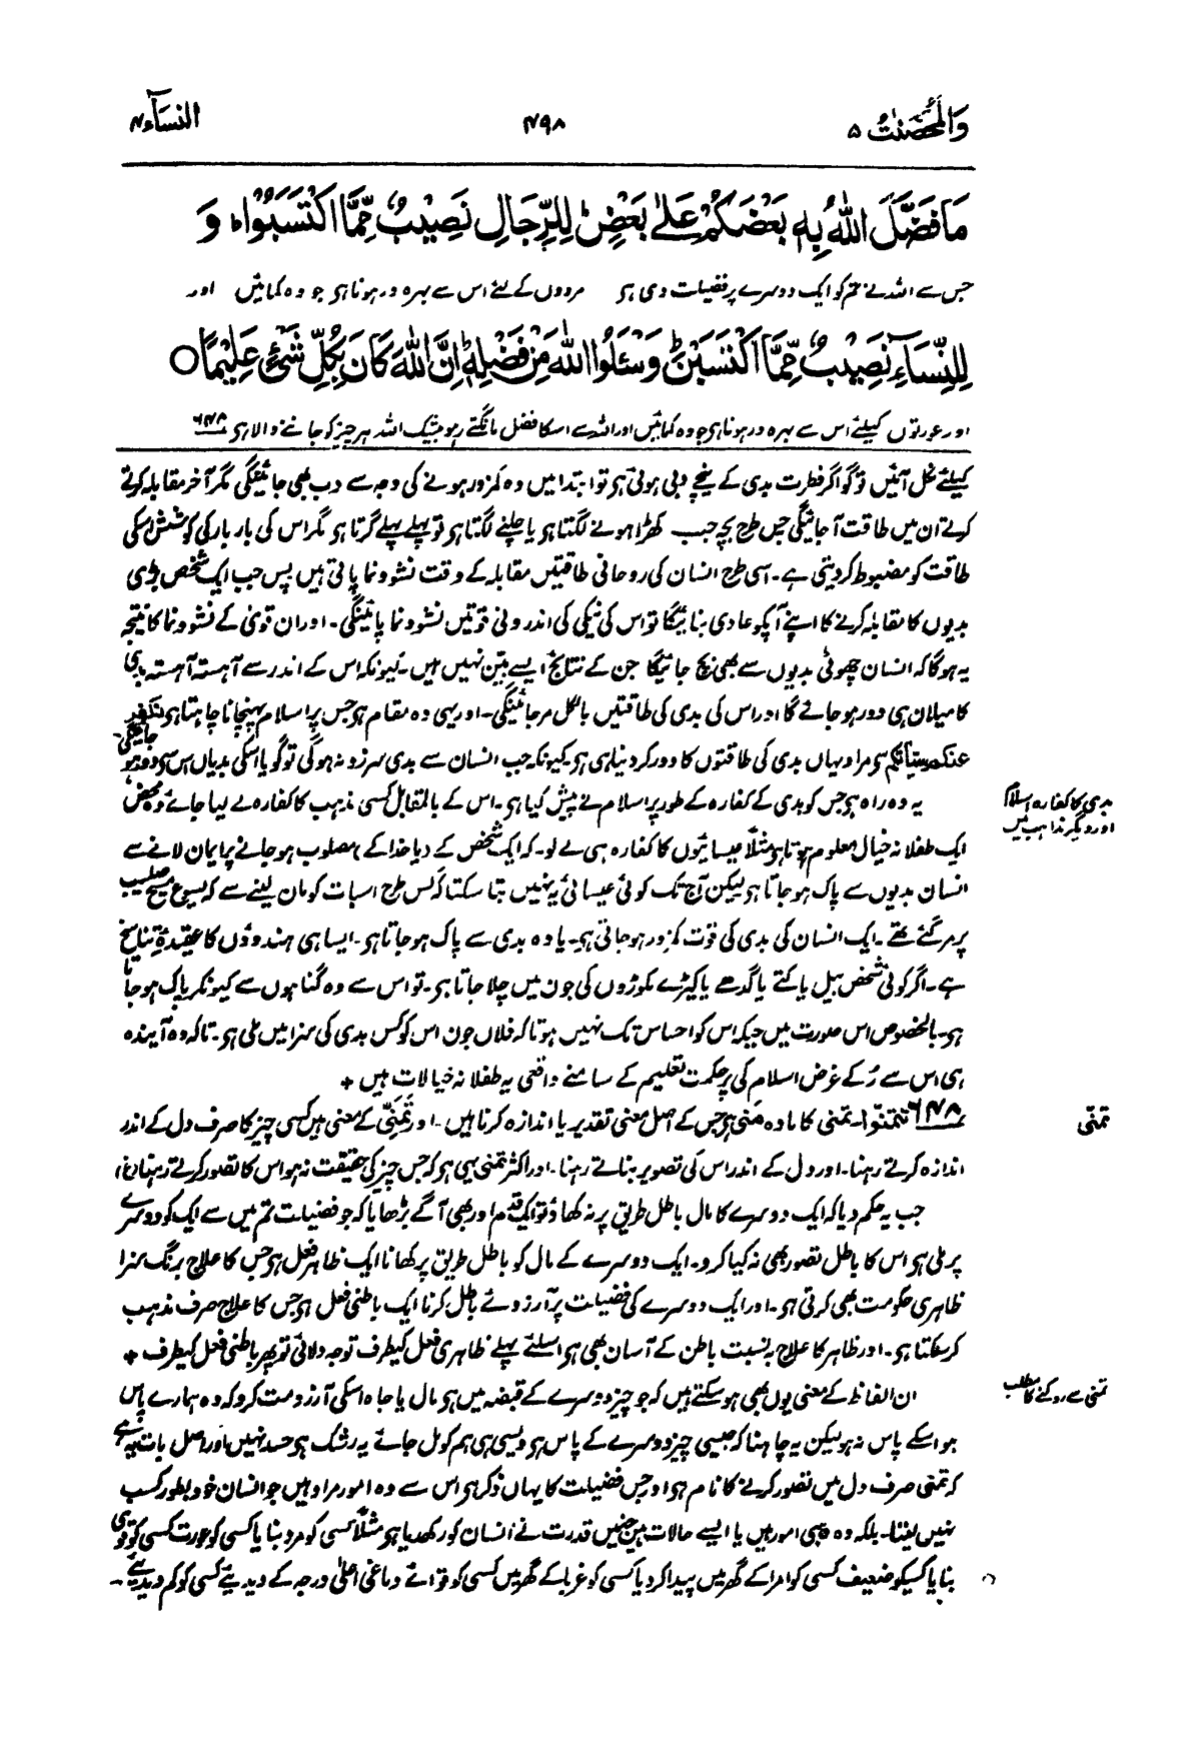 وَالْمُحْصَنٰتُ ۵
۴۹۸
النسآء ۴
مَا فَضَّلَ اللّٰهُ بِهٖ بَعْضَكُمْ عَلٰى بَعْضٍ ؕ لِلرِّجَالِ نَصِيْبٌ مِّمَّا اكْتَسَبُوْا ؕ وَ
جس سے اللہ نے تم کو ایک دوسرے پر فضیلت دی ہی مردوں کے لئے اس سے بہرہ ور ہونا ہی جو وہ کمائیں اور
لِلنِّسَآءِ نَصِيْبٌ مِّمَّا اكْتَسَبْنَ ؕ وَسْـَٔلُوا اللّٰهَ مِنْ فَضْلِهٖ ؕ اِنَّ اللّٰهَ كَانَ بِكُلِّ شَيْءٍ عَلِيْمًا ○
اور عورتوں کیلئے اس سے بہرہ ور ہونا ہی جو وہ کمائیں اور اللہ سے اسکا فضل مانگتے رہو بیشک اللہ ہر چیز کو جاننے والا ہی ۶۴۸
کیلئے نکل آئیں تو گو اگر فطرت بدی کے نیچے دبی ہوئی ہی تو ابتدا میں وہ کمزور ہونے کی وجہ سے دب بھی جائینگی مگر آخر مقابلہ کرتے
کرتے ان میں طاقت آجائیگی جس طرح بچہ جب کھڑا ہونے لگتا ہی یا چلنے لگتا ہی تو پہلے پہلے گرتا ہی مگر اس کی بار بار کی کوشش اسکی
طاقت کو مضبوط کر دیتی ہے۔ اسی طرح انسان کی روحانی طاقتیں مقابلہ کے وقت نشوونما پاتی ہیں پس جب ایک شخص بڑی
بدیوں کا مقابلہ کرنے کا اپنے آپ کو عادی بنائیگا تو اس کی نیکی کی اندرونی قوتیں نشوونما پائینگی۔ اور ان قویٰ کے نشوونما کا نتیجہ
یہ ہوگا کہ انسان چھوٹی بدیوں سے بھی بچ جائیگا جن کے نتائج ایسے بیّن نہیں ہیں۔ کیونکہ اس کے اندر سے آہستہ آہستہ بدی
کا میلان ہی دور ہو جائے گا اور اس کی بدی کی طاقتیں بالکل مر جائینگی۔ اور یہی وہ مقام ہی جس پر اسلام پہنچانا چاہتا ہی نکفر
عنکم سیّاتکم سے مراد یہاں بدی کی طاقتوں کا دور کر دینا ہی ہی کیونکہ جب انسان سے بدی سرزد نہ ہوگی تو گویا اسکی بدیاں اس سے دور ہو جائینگی۔
یہ وہ راہ ہی جس کو بدی کے کفارہ کے طور پر اسلام نے پیش کیا ہی۔ اس کے بالمقابل کسی مذہب کا کفارہ لے لیا جائے وہ محض
بدی کا کفارہ اسلام
اور دیگر مذاہب میں
ایک طفلانہ خیال معلوم ہوتا ہی مثلاً عیسائیوں کا کفارہ ہی لے لو۔ کہ ایک شخص کے دیا خدا کے مصلوب ہو جانے پر ایمان لانے سے
انسان بدیوں سے پاک ہو جاتا ہی لیکن آج تک کوئی عیسائی یہ نہیں بتا سکتا کہ کس طرح اس بات کو مان لینے سے کہ یسوع مسیح صلیب
پر مر گئے تھے۔ ایک انسان کی بدی کی قوت کمزور ہو جاتی ہی۔ یا وہ بدی سے پاک ہو جاتا ہی۔ ایسا ہی ہندوؤں کا عقیدۂ تناسخ
ہے۔ اگر کوئی شخص بیل یا کتے یا گدھے یا کیڑے مکوڑوں کی جون میں چلا جاتا ہی۔ تو اس سے وہ گناہوں سے کیونکر پاک ہو جاتا
ہی۔ بالخصوص اس صورت میں جبکہ اس کو احساس تک نہیں ہوتا کہ فلاں جون اس کو کس بدی کی سزا میں ملی ہی۔ تاکہ وہ آیندہ
ہی اس سے رُکے غرض اسلام کی پر حکمت تعلیم کے سامنے واقعی یہ طفلانہ خیالات ہیں +
تمنّی
۶۴۸ تتمنّوا۔ تمنی کا مادہ مَنٰی ہی جس کے اصل معنی تقدیر یا اندازہ کرنا ہیں۔ اور تَمَنِّی کے معنی ہیں کسی چیز کا صرف دل کے اندر
اندازہ کرتے رہنا۔ اور دل کے اندر اس کی تصویر بناتے رہنا۔ اور اکثر تمنی یہی ہی کہ جس چیز کی حقیقت نہ ہو اس کا تصور کرتے رہنا (غ)
جب یہ حکم دیا کہ ایک دوسرے کا مال باطل طریق پر نہ کھاؤ تو ایک قدم اور بھی آگے بڑھایا کہ جو فضیلت تم میں سے ایک کو دوسرے
پر ملی ہو اس کا باطل تصور بھی نہ کیا کرو۔ ایک دوسرے کے مال کو باطل طریق پر کھانا ایک ظاہر فعل ہی جس کا علاج برنگ سزا
ظاہری حکومت بھی کرتی ہی۔ اور ایک دوسرے کی فضیلت پر آرزوئے باطل کرنا ایک باطنی فعل ہی جس کا علاج صرف مذہب
کر سکتا ہی۔ اور ظاہر کا علاج بہ نسبت باطن کے آسان بھی ہی اسلئے پہلے ظاہری فعل کیطرف توجہ دلائی تو پھر باطنی فعل کیطرف +
تمنّی سے روکنے کا مطلب
ان الفاظ کے معنی یوں بھی ہو سکتے ہیں کہ جو چیز دوسرے کے قبضہ میں ہی مال یا جاہ اسکی آرزو مت کرو کہ وہ ہمارے پاس
ہو اسکے پاس نہ ہو لیکن یہ چاہنا کہ جیسی چیز دوسرے کے پاس ہی ویسی ہی ہم کو مل جائے یہ رشک ہی حسد نہیں اور اصل بات یہ ہے
کہ تمنی صرف دل میں تصور کرنے کا نام ہی اور جس فضیلت کا یہاں ذکر ہی اس سے وہ امور مراد ہیں جو انسان خود بطور کسب
نہیں لیتا۔ بلکہ وہ وہبی امور ہیں یا ایسے حالات ہیں جنمیں قدرت نے انسان کو رکھدیا ہی مثلاً کسی کو مرد بنا یا کسی کو عورت کسی کو قوی
بنا یا کسیکو ضعیف کسی کو امرا کے گھر میں پیدا کر دیا کسی کو غربا کے گھر میں کسی کو قوائے دماغی اعلیٰ درجہ کے دیدیئے کسی کو کم دیدیئے۔